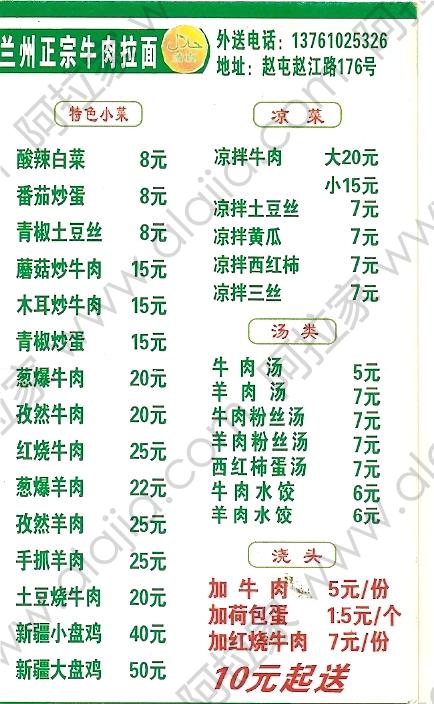 兰州正宗牛肉拉面
外送电话：13761025326
地址：赵屯赵江路176号
特色小菜
酸辣白菜 8元
番茄炒蛋 8元
青椒土豆丝 8元
蘑菇炒牛肉 15元
木耳炒牛肉 15元
青椒炒蛋 15元
葱爆牛肉 20元
孜然牛肉 20元
红烧牛肉 25元
葱爆羊肉 22元
孜然羊肉 25元
手抓羊肉 25元
土豆烧牛肉 20元
新疆小盘鸡 40元
新疆大盘鸡 50元
凉菜
凉拌牛肉 大20元
小15元
凉拌土豆丝 7元
凉拌黄瓜 7元
凉拌西红柿 7元
凉拌三丝 7元
汤类
牛肉汤 5元
羊肉汤 7元
牛肉粉丝汤 7元
羊肉粉丝汤 7元
西红柿蛋汤 7元
牛肉水饺 6元
羊肉水饺 6元
浇头
加牛肉 5元/份
加荷包蛋 1.5元/个
加红烧牛肉 7元/份
10元起送
阿拉家 www.alajia.com